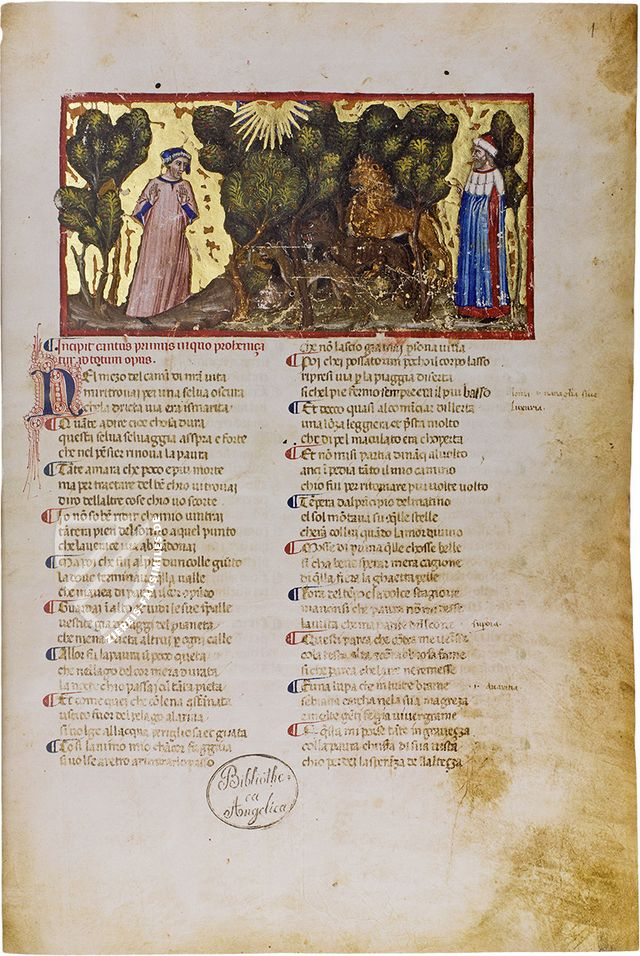 1
Incipit cantus primus in quo prohemiza
tur ad totum opus.
NEl mezo del cami di nra vita
mi ritrovai per una selva oscura
che la dricta via era smarita
Quate a dire cice chosa dura
questa selva selvaggia asspra e forte
che nel pensier rinova la paura
Tate amara che poco e piu morte
ma per tractare del ben chio vi trovai
diro dellaltre cose chio vo scorte
Io no so ben ridir chomio vintrai
tatera pien del sonno a quel punto
che la verace via abandonai
Ma poi chi fui al pie dun colle giuto
la dove terminava qlla valle
che mavea di paura il cor conputo
Guardai i alto e vidi le sue spalle
vestite gia di raggi del pianeta
che mena dricta altrui p ogni calle
Allor fu la paura u poco queta
che nel lago del cor mera durata
la nocte chio passai cu tata pieta
Et come quei che co lena affanata
uscito fuor del pelago a la riva
si volge allacqua perigliosa e guata
Cosi lanimo mio chacor fuggiva
si volse a retro a rimirar lo passo
che no lascio gia mai psona viva
Poi chei possato un pocho il corpo lasso
ripresi via p la piaggia diserta
si chel pie fermo sempre era il piu basso
Et eccco quasi al comiciar dellerta
una loza leggiera et psta molto
che di pel maculato era choperta
Et no mi si partia dinaci al volto
anci i pedia tato il mio camino
chio fui per ritornare piu volte volto
Tepera dal principio del matino
el sol motava su qlle stelle
cherā collui quado lamor divino
Mosse di prima qlle chosse belle
si cha bene sperar mera cagione
di qlla fiera la ghaetta pelle
Lora del tepo e la dolce stagione
ma no si che paura no mi desse
la vista che maparve dun leone
superbia
Questi parea che cotra me venesse
cola testa alta et co rabiosa fame
si che parea che laire ne temesse
Et una lupa che di tucte brame
avaritia
sebiava carcha nela sua magreza
et molte geti fe gia viver grame
Questa mi porse tato di gravezza
colla paura chuscia di sua vista
chio perdei la speraza de laltezza
Bibliothe=
ca
Angelica